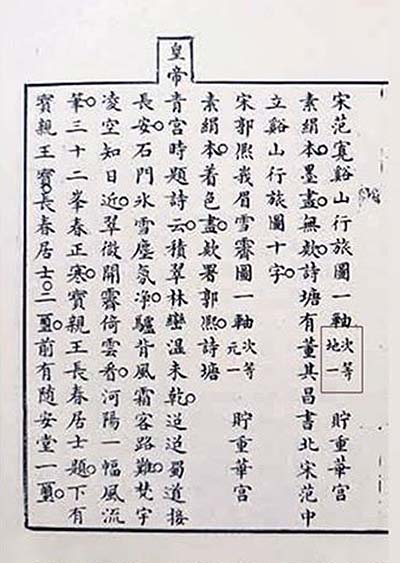 宋范寬谿山行旅圖一軸次等地一 貯重華宮
素絹本。墨畫。無款。詩塘有董其昌書北宋范中
立谿山行旅圖十字。
宋郭熙峩眉雪霽圖一軸次等元一 貯重華宮
素絹本。着色畫。款署郭熙。詩塘
皇帝青宮時題詩云。積翠林巒溫未乾。迢迢蜀道接
長安。石門氷雪塵氛淨。驢背風霜客路難。梵宇
凌空知日近。翠微開霽倚雲看。河陽一幅風流
筆。三十二峯春正寒。寶親王長春居士題。下有
寶親王寶。長春居士。二璽。前有隨安堂一璽。